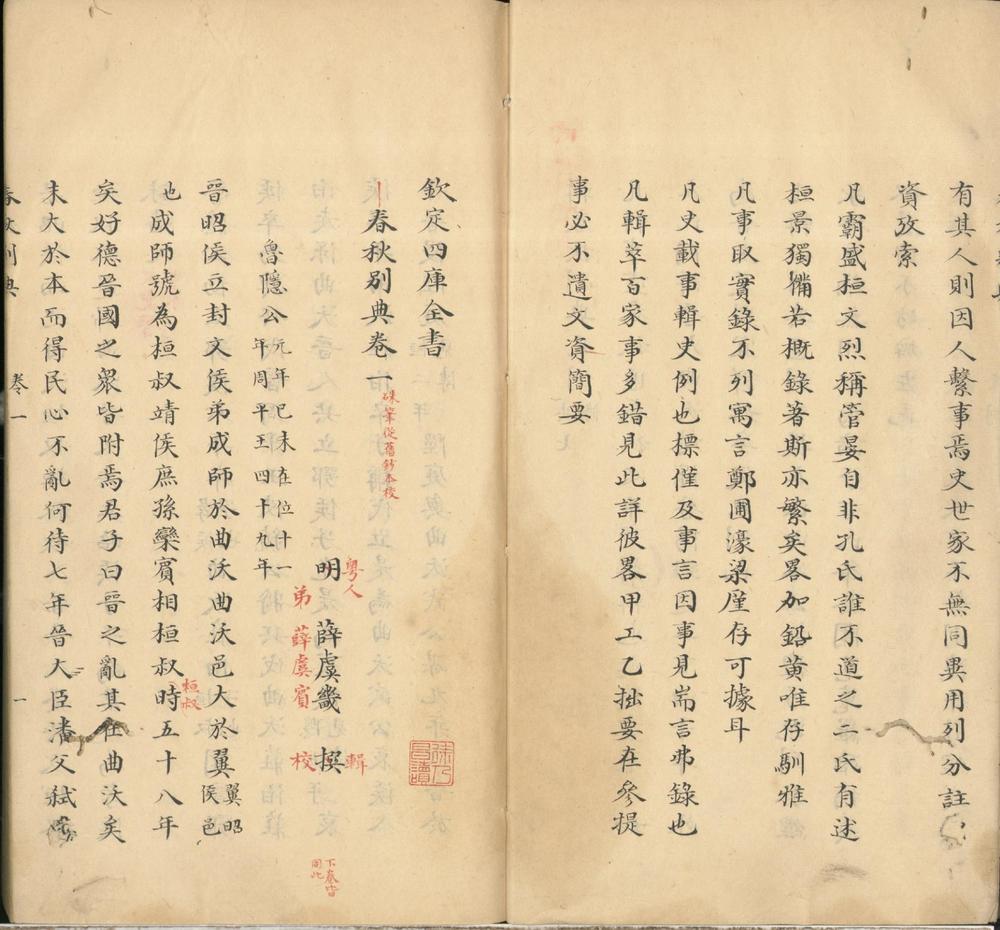 有其人則因人繫事焉史世家不無同異用列分註
資攷索
凡霸盛桓文烈稱管晏自非孔氏誰不道之二氏有述
桓景獨備若概錄著斯亦繁矣畧加鉛黃唯存馴雅
凡事取實錄不列寓言鄭圃濠梁厪存可據耳
凡史載事輯史例也標僅及事言因事見耑言弗錄也
凡輯萃百家事多錯見此詳彼畧甲工乙拙要在參提
事必不遺文資簡要
欽定四庫全書
春秋別典卷一
硃筆從舊鈔本校
粵人
明 薛虞畿 撰
輯
弟 薛虞賓 校
下卷皆
同此
魯隱公元年己未在位十一
年周平王四十九年
晉昭侯立封文侯弟成師於曲沃曲沃邑大於翼翼昭
侯邑
也成師號為桓叔靖侯庶孫欒賓相桓叔時五十八年
桓叔
矣好德晉國之眾皆附焉君子曰晉之亂其在曲沃矣
末大於本而得民心不亂何待七年晉大臣潘父弒
卷一
一